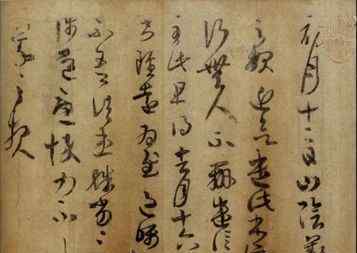 初月十二日山陰羲
之報近欲遣此書停
行無人不辦遣信
至此且得去月十六
書雖遠為慰過囑
不吾諸患殊劣〻
涉道憂悴力不
羲之報